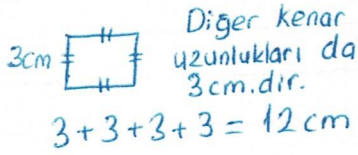 3cm
Diğer kenar
uzunlukları da
3cm.dir.
3+3+3+3=12cm